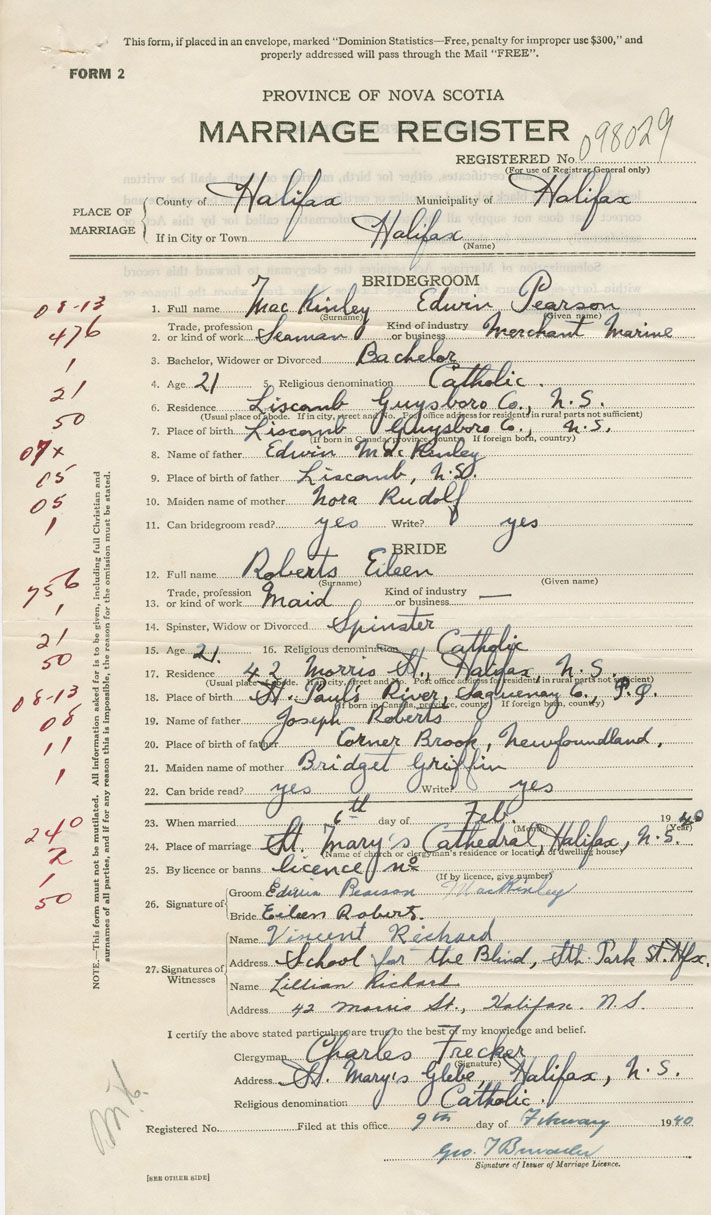 This form, if placed in an envelope, marked "Dominion Statistics—Free, penalty for improper use $300," and
properly addressed will pass through the Mail "FREE".
FORM 2
PROVINCE OF NOVA SCOTIA
MARRIAGE REGISTER
REGISTERED No. 098029
(For use of Registrar General only)
PLACE OF MARRIAGE
County of Halifax Municipality of Halifax
If in City or Town Halifax
(Name)
BRIDEGROOM
1. Full name MacKinley Edwin Pearson
(Surname) (Given name)
2. Trade, profession or kind of work Seaman Kind of industry or business Merchant Marine
3. Bachelor, Widower or Divorced Bachelor
4. Age 21 5. Religious denomination Catholic.
6. Residence Liscomb Guysboro Co., N.S.
(Usual place of abode. If in city, street and No. Post office address for residents in rural parts not sufficient)
7. Place of birth Liscomb Guysboro Co., N.S.
(If born in Canada, province, county If foreign born, country)
8. Name of father Edwin MacKenley
9. Place of birth of father Liscomb, N.S.
10. Maiden name of mother Nora Rudolf
11. Can bridegroom read? yes Write? yes
BRIDE
12. Full name Roberts Eileen
(Surname) (Given name)
13. Trade, profession or kind of work Maid Kind of industry or business —
14. Spinster, Widow or Divorced Spinster
15. Age 21. 16. Religious denomination Catholic
17. Residence 42 Morris St., Halifax, N.S.
(Usual place of abode. If in city, street and No. Post office address for residents in rural parts not sufficient)
18. Place of birth St. Paul's River, Saguenay Co., P.Q.
(If born in Canada, province, county If foreign born, country)
19. Name of father Joseph Roberts
20. Place of birth of father Corner Brook, Newfoundland,
21. Maiden name of mother Bridget Griffin
22. Can bride read? yes Write? yes
23. When married 6th day of Feb. 1940
(Month) (Year)
24. Place of marriage St. Mary's Cathedral, Halifax, N.S.
(Name of church or clergyman's residence or location of dwelling house)
25. By licence or banns licence no
(If by licence, give number)
26. Signature of
Groom Edwin Pearson MacKinley
Bride Eileen Roberts.
27. Signatures of Witnesses
Name Vincent Richard
Address School for the Blind, Sth. Park St. Hfx.
Name Lillian Richard
Address 42 Morris St., Halifax. N.S.
I certify the above stated particulars are true to the best of my knowledge and belief.
Clergyman Charles Frecker
(Signature)
Address St. Mary's Glebe, Halifax, N.S.
Religious denomination Catholic.
Registered No. Filed at this office 9th day of February 1940
Geo. T
Signature of Issuer of Marriage Licence.
[SEE OTHER SIDE]
NOTE.—This form must not be mutilated. All information asked for is to be given, including full Christian and
surnames of all parties, and if for any reason this is impossible, the reason for the omission must be stated.
08-13
476
1
21
50
07x
05
05
1
756
1
21
50
08-13
08
11
1
240
2
1
50